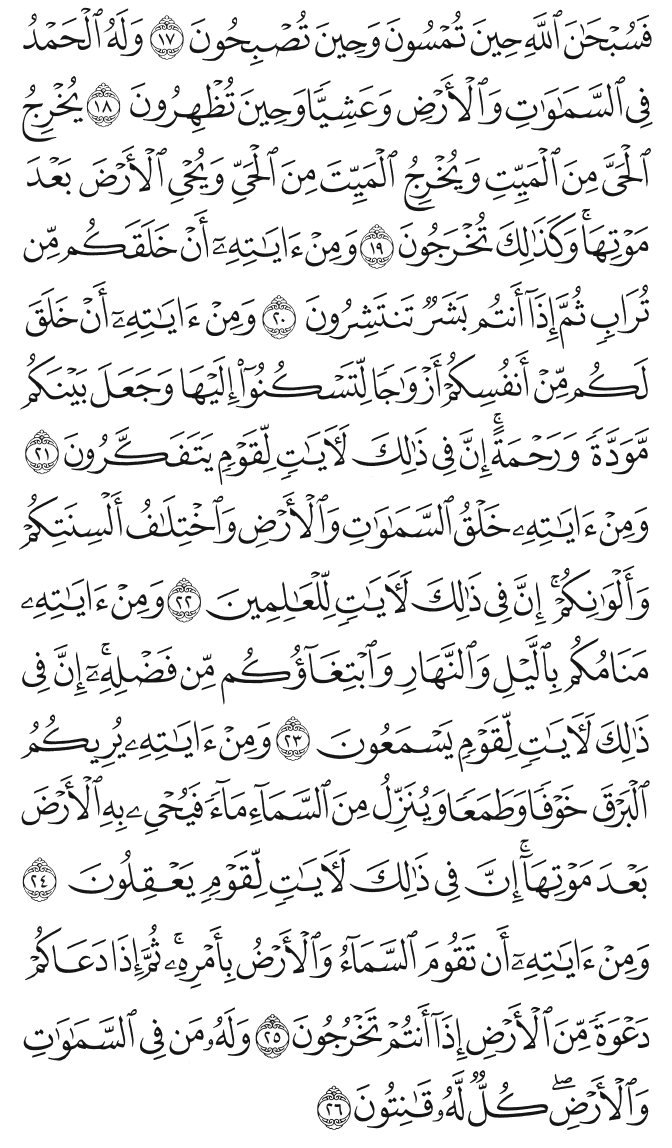 فَسُبْحَٰنَ ٱللَّهِ حِينَ تُمْسُونَ وَحِينَ تُصْبِحُونَ ١٧ وَلَهُ ٱلْحَمْدُ
فِى ٱلسَّمَٰوَٰتِ وَٱلْأَرْضِ وَعَشِيًّا وَحِينَ تُظْهِرُونَ ١٨ يُخْرِجُ
ٱلْحَىَّ مِنَ ٱلْمَيِّتِ وَيُخْرِجُ ٱلْمَيِّتَ مِنَ ٱلْحَىِّ وَيُحْىِ ٱلْأَرْضَ بَعْدَ
مَوْتِهَا ۚ وَكَذَٰلِكَ تُخْرَجُونَ ١٩ وَمِنْ ءَايَٰتِهِۦٓ أَنْ خَلَقَكُم مِّن
تُرَابٍ ثُمَّ إِذَآ أَنتُم بَشَرٌ تَنتَشِرُونَ ٢٠ وَمِنْ ءَايَٰتِهِۦٓ أَنْ خَلَقَ
لَكُم مِّنْ أَنفُسِكُمْ أَزْوَٰجًا لِّتَسْكُنُوٓا۟ إِلَيْهَا وَجَعَلَ بَيْنَكُم
مَّوَدَّةً وَرَحْمَةً ۚ إِنَّ فِى ذَٰلِكَ لَءَايَٰتٍ لِّقَوْمٍ يَتَفَكَّرُونَ ٢١
وَمِنْ ءَايَٰتِهِۦ خَلْقُ ٱلسَّمَٰوَٰتِ وَٱلْأَرْضِ وَٱخْتِلَٰفُ أَلْسِنَتِكُمْ
وَأَلْوَٰنِكُمْ ۚ إِنَّ فِى ذَٰلِكَ لَءَايَٰتٍ لِّلْعَٰلِمِينَ ٢٢ وَمِنْ ءَايَٰتِهِۦ
مَنَامُكُم بِٱلَّيْلِ وَٱلنَّهَارِ وَٱبْتِغَآؤُكُم مِّن فَضْلِهِۦٓ ۚ إِنَّ فِى
ذَٰلِكَ لَءَايَٰتٍ لِّقَوْمٍ يَسْمَعُونَ ٢٣ وَمِنْ ءَايَٰتِهِۦ يُرِيكُمُ
ٱلْبَرْقَ خَوْفًا وَطَمَعًا وَيُنَزِّلُ مِنَ ٱلسَّمَآءِ مَآءً فَيُحْىِۦ بِهِ ٱلْأَرْضَ
بَعْدَ مَوْتِهَآ ۚ إِنَّ فِى ذَٰلِكَ لَءَايَٰتٍ لِّقَوْمٍ يَعْقِلُونَ ٢٤
وَمِنْ ءَايَٰتِهِۦٓ أَن تَقُومَ ٱلسَّمَآءُ وَٱلْأَرْضُ بِأَمْرِهِۦ ۚ ثُمَّ إِذَا دَعَاكُمْ
دَعْوَةً مِّنَ ٱلْأَرْضِ إِذَآ أَنتُمْ تَخْرُجُونَ ٢٥ وَلَهُۥ مَن فِى ٱلسَّمَٰوَٰتِ
وَٱلْأَرْضِ ۖ كُلٌّ لَّهُۥ قَٰنِتُونَ ٢٦